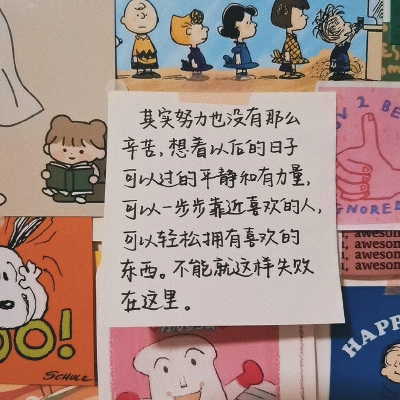 其实努力也没有那么
辛苦,想着以后的日子
可以过的平静和有力量,
可以一步步靠近喜欢的人,
可以轻松拥有喜欢的
东西。不能就这样失败
在这里。
2 BE
GNORED
awesom
awesom
awesom
OO!
SCHULZ
HAPP